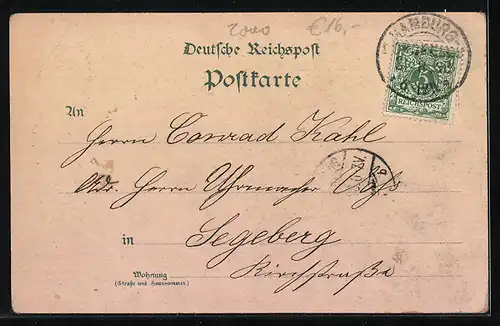 2000 €16,-
Deutsche Reichspost
Postkarte
HAMBURG
5
REICHSPOST
An
Herrn Conrad Kahl
Adr. Herrn Uhrmacher
in Segeberg
Wohnung Kirchstraße
(Straße und Hausnummer)